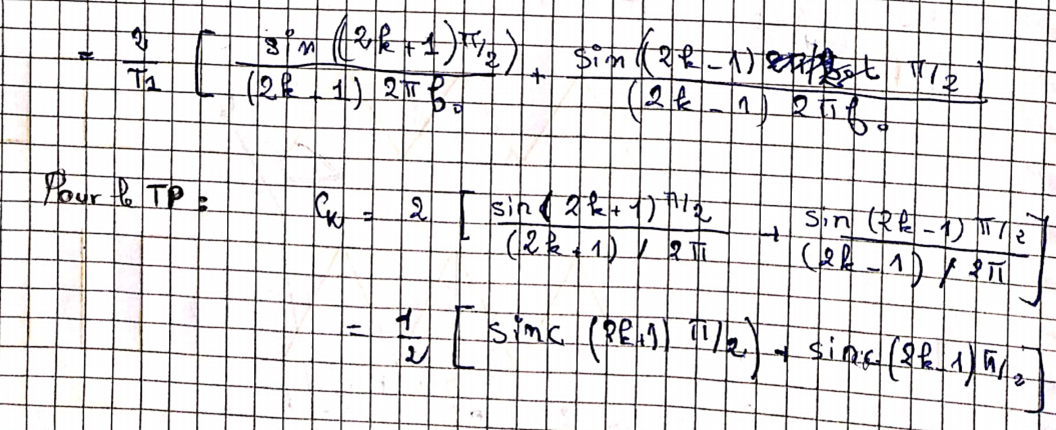 = 2/T1 [ sin((2k+1)π/2) / (2k-1) 2πf₀ + sin((2k-1) π/2 / (2k-1) 2πf₀ ]
Pour le TP : Ck = 2 [ sin( 2k+1) π/2 / (2k+1) / 2π + sin (2k-1) π/2 / (2k-1) / 2π ]
= 1/2 [ sinc (2k+1) π/2) + sinc (2k-1) π/2 ]